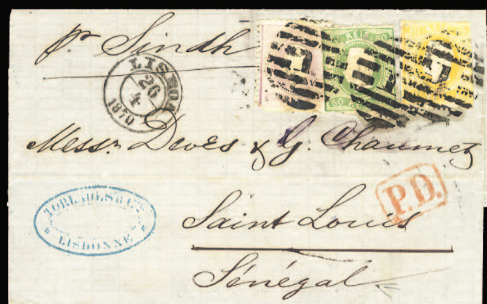 pr Sindh
LISBOA
26
4
1870
REIS
Messrs Devès & G. Chaumet
P.D.
LISBONNE
Saint Louis
Sénégal